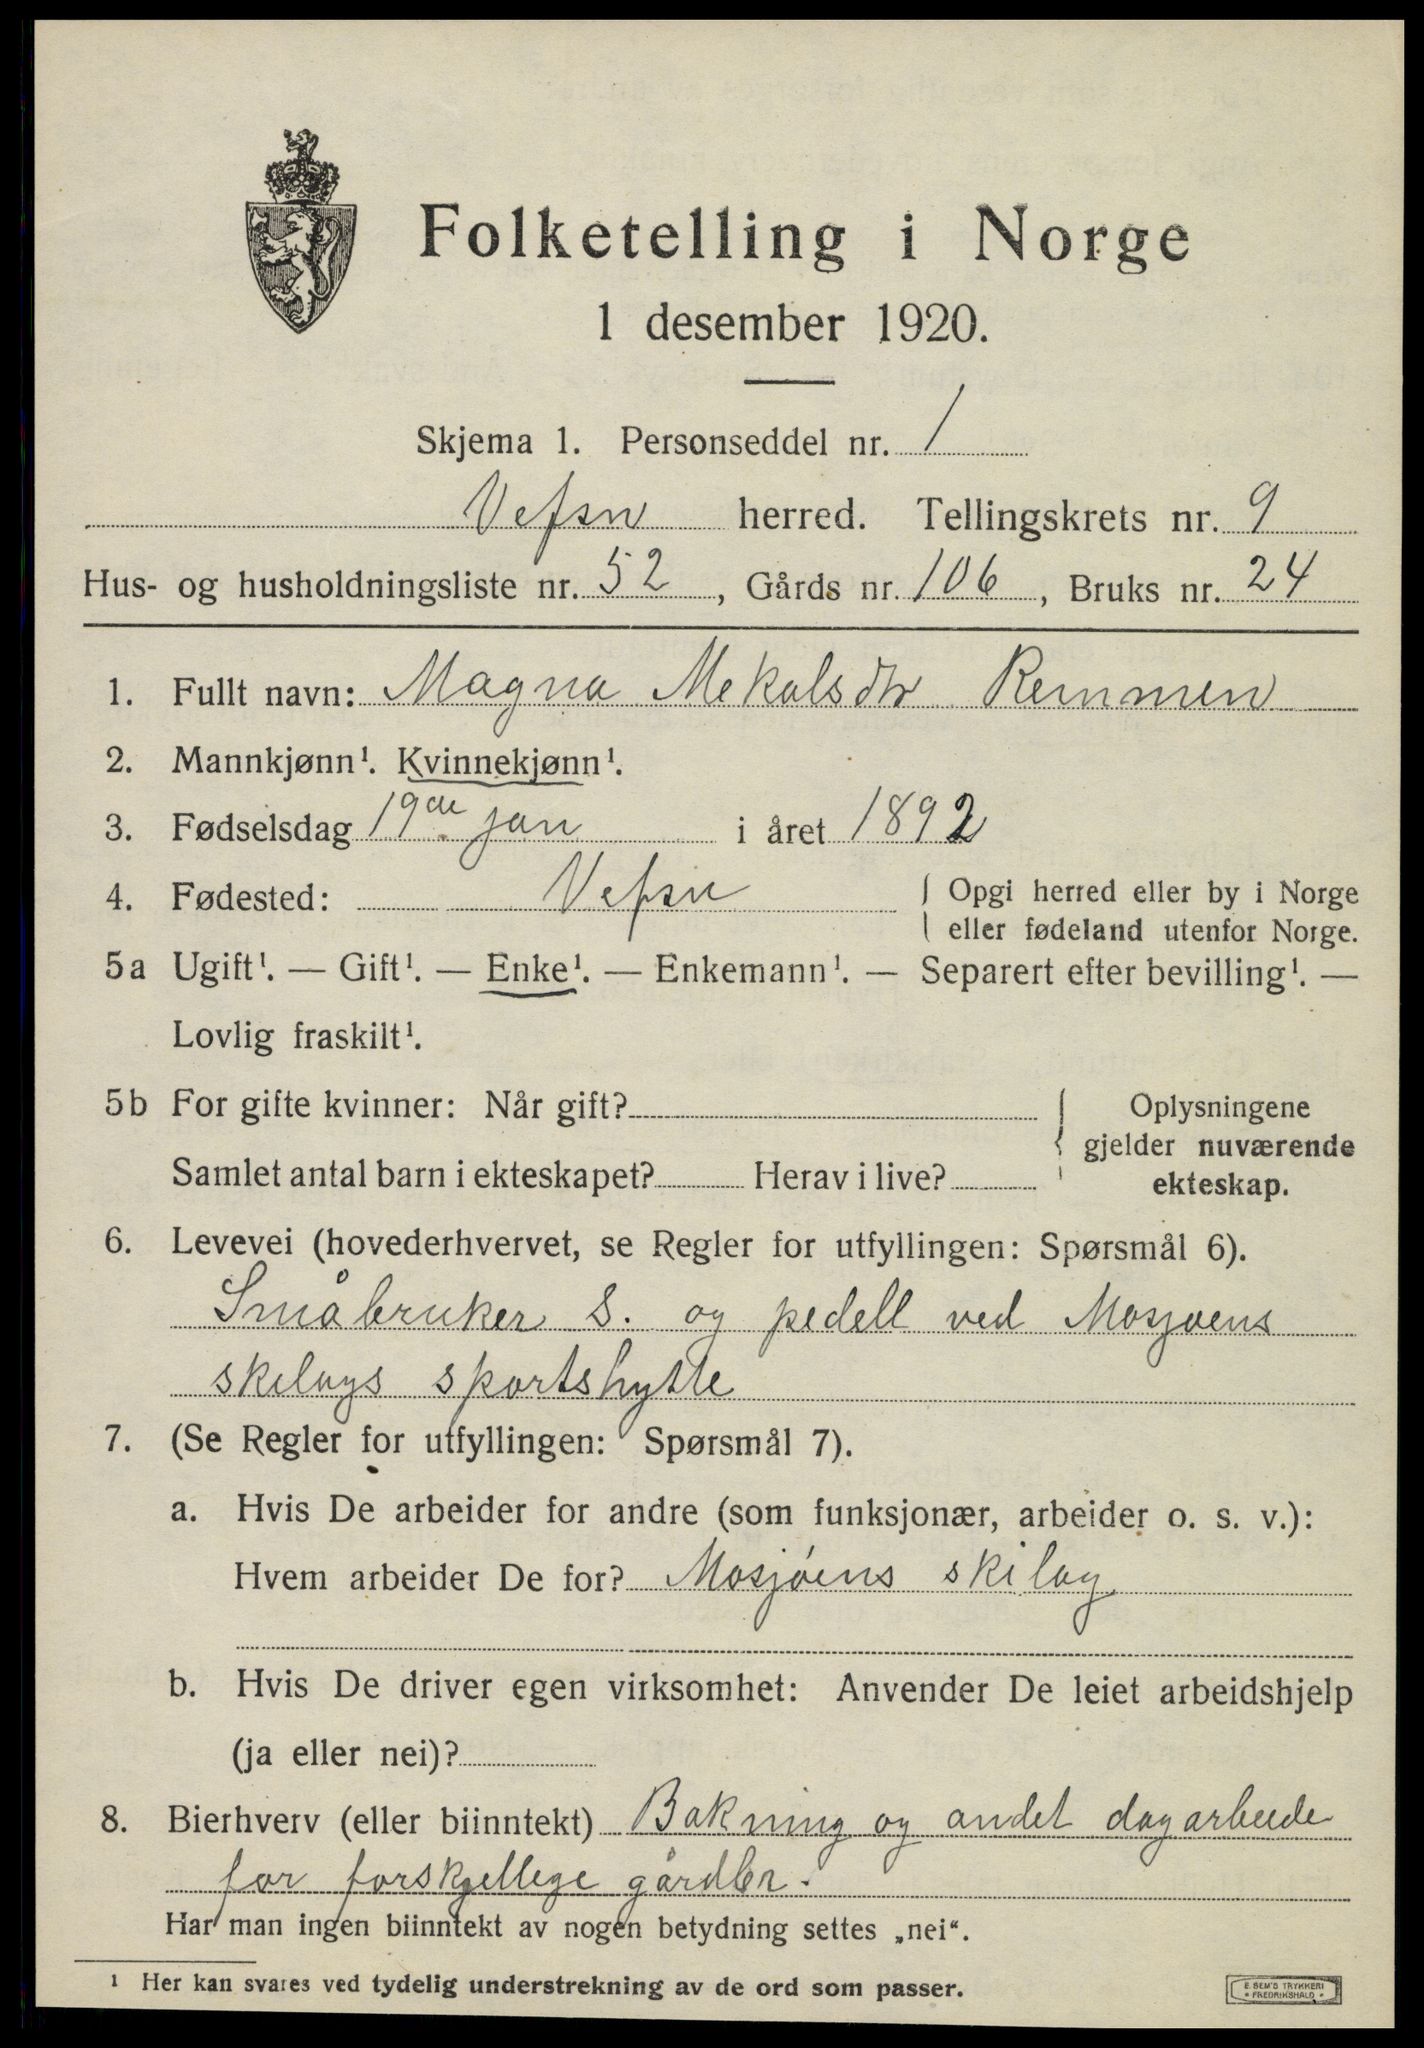 Folketelling i Norge
1 desember 1920.
Skjema 1. Personseddel nr. 1
Vefsn herred. Tellingskrets nr. 9
Hus- og husholdningsliste nr. 52, Gårds nr. 106, Bruks nr. 24
1. Fullt navn: Magna Mekalsdtr Remmen
2. Mannkjønn¹. Kvinnekjønn¹.
3. Fødselsdag 19de jan i året 1892
4. Fødested: Vefsn { Opgi herred eller by i Norge
eller fødeland utenfor Norge.
5a Ugift¹. — Gift¹. — Enke¹. — Enkemann¹. — Separert efter bevilling¹. —
Lovlig fraskilt¹.
5b For gifte kvinner: Når gift? { Oplysningene
gjelder nuværende
Samlet antal barn i ekteskapet? Herav i live? ekteskap.
6. Levevei (hovederhvervet, se Regler for utfyllingen: Spørsmål 6).
Småbruker S. og pedell ved Mosjøens
skilags sportshytte
7. (Se Regler for utfyllingen: Spørsmål 7).
a. Hvis De arbeider for andre (som funksjonær, arbeider o. s. v.):
Hvem arbeider De for? Mosjøens skilag
b. Hvis De driver egen virksomhet: Anvender De leiet arbeidshjelp
(ja eller nei)?
8. Bierhverv (eller biinntekt) Bakning og andet dagarbeide
for forskjellege gårdbr.
Har man ingen biinntekt av nogen betydning settes „nei“.
¹ Her kan svares ved tydelig understrekning av de ord som passer.
E. SEM'S TRYKKERI
• FREDRIKSHALD •